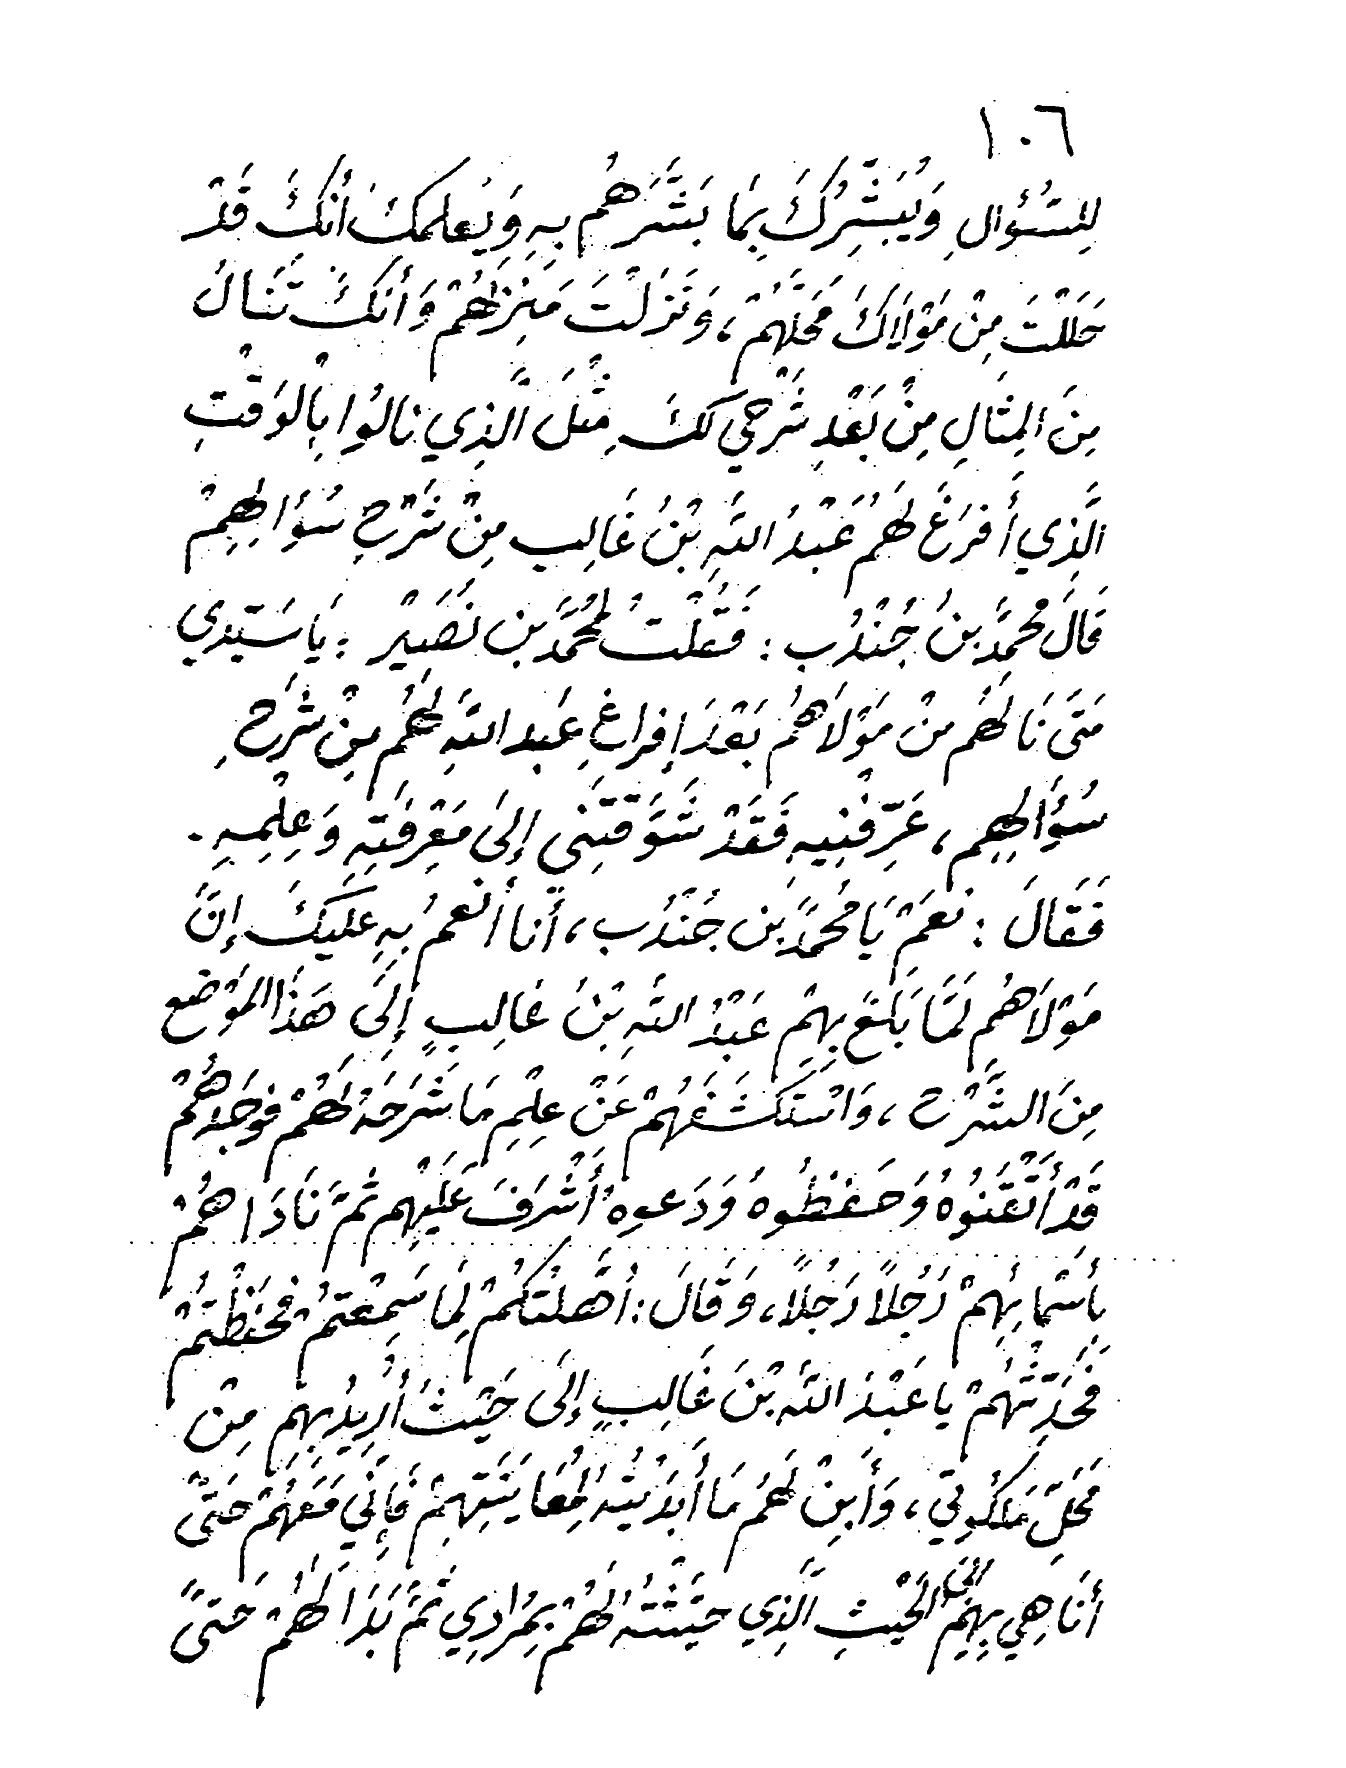 ١٠٦
لِلسُّؤالِ وَيُبَشِّرُكَ بِمَا بَشَّرَهُم بِهِ وَيُعلمكَ أنكَ قَدْ
حَلَلْتَ مِنْ مَوْلَاكَ مَحَلَّهُمْ، وَنَزَلْتَ مَنِزلَهُمْ وَأنكَ تَنَالُ
مِنَ المِثَالِ مِنْ بَعْدِ شَرْحِي لَكَ مِثْلَ الَّذِي نالوُا بِالوَقْتِ
الَّذِي أَفرَغَ لَهُم عَبْدُ اللَّهِ بْنُ غَالِب مِنْ شَرْحِ سُؤالِهِمْ
قَالَ مُحمَّد بنُ جُنْدُب : فَقُلْتُ لمُحمَّد بن نَصَيْر : يَا سَيّدي
مَتَى نَالَهُم منْ مَوْلَاهُم بَعْدَ إفراغِ عَبد اللَّهِ لَهُم مِنْ شَرْحِ
سُؤَالِهِم، عَرِّفنِيهِ فَقَدْ شَوَّقتَنِى إلىَ مَعْرِفَتِهِ وَعِلْمِهِ .
فَقَالَ : نعَمْ يَا مُحمَّد بَن جُنْدُب، أَنا أنعمُ بِهِ عَليكَ إنَّ
مَوْلَاهُم لَمَّا بَلَغَ بِهِمْ عَبْدُ اللَّهِ بْنُ غَالِبٍ إلىَ هَذَا المَوْضع
مِنَ الشَّرْح، وَاسْتكَشَفَهُمْ عَنْ عِلْمِ مَا شَرَحَهُ لَهُمْ فوَجَدَهُمْ
قَدْ أَتْقَنُوهُ وَحَفظُوهُ وَدَعوهُ أَشْرَفَ عَلَيْهِم ثمَّ نَادَاهُمْ
بأَسْمائِهِمْ رَجُلاً رَجُلاً، وَقَالَ : أهَّلْتكُمْ لِمَا سَمِعْتمُ فحَفَظْتمُْ
فَحَدِّثْهُمْ يا عَبْدَ اللَّه بْنَ غَالِبٍ إلَى حَيْثُ أُرِيدُ بِهِم مِنْ
مَحَلِّ مَلَكُوتي، وَأَبِنْ لَهُم مَا أَبدَيْتُهُ لمُعَايَنَتِهِمْ فَإنِّي مَعَهُمْ حَتىَّ
أَنَاهِي بِهِمْ إلَى الحَيْثِ الَّذِي حَيَّثْتهُ لَهُمْ بِمُرَادِي ثمَّ بَدَا لَهُمْ حَتىَّ